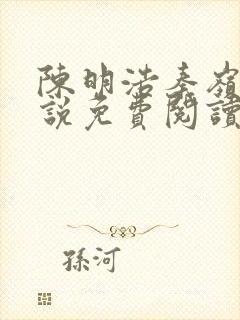 陳明浩秦嶺
說免費閱讀
孫河